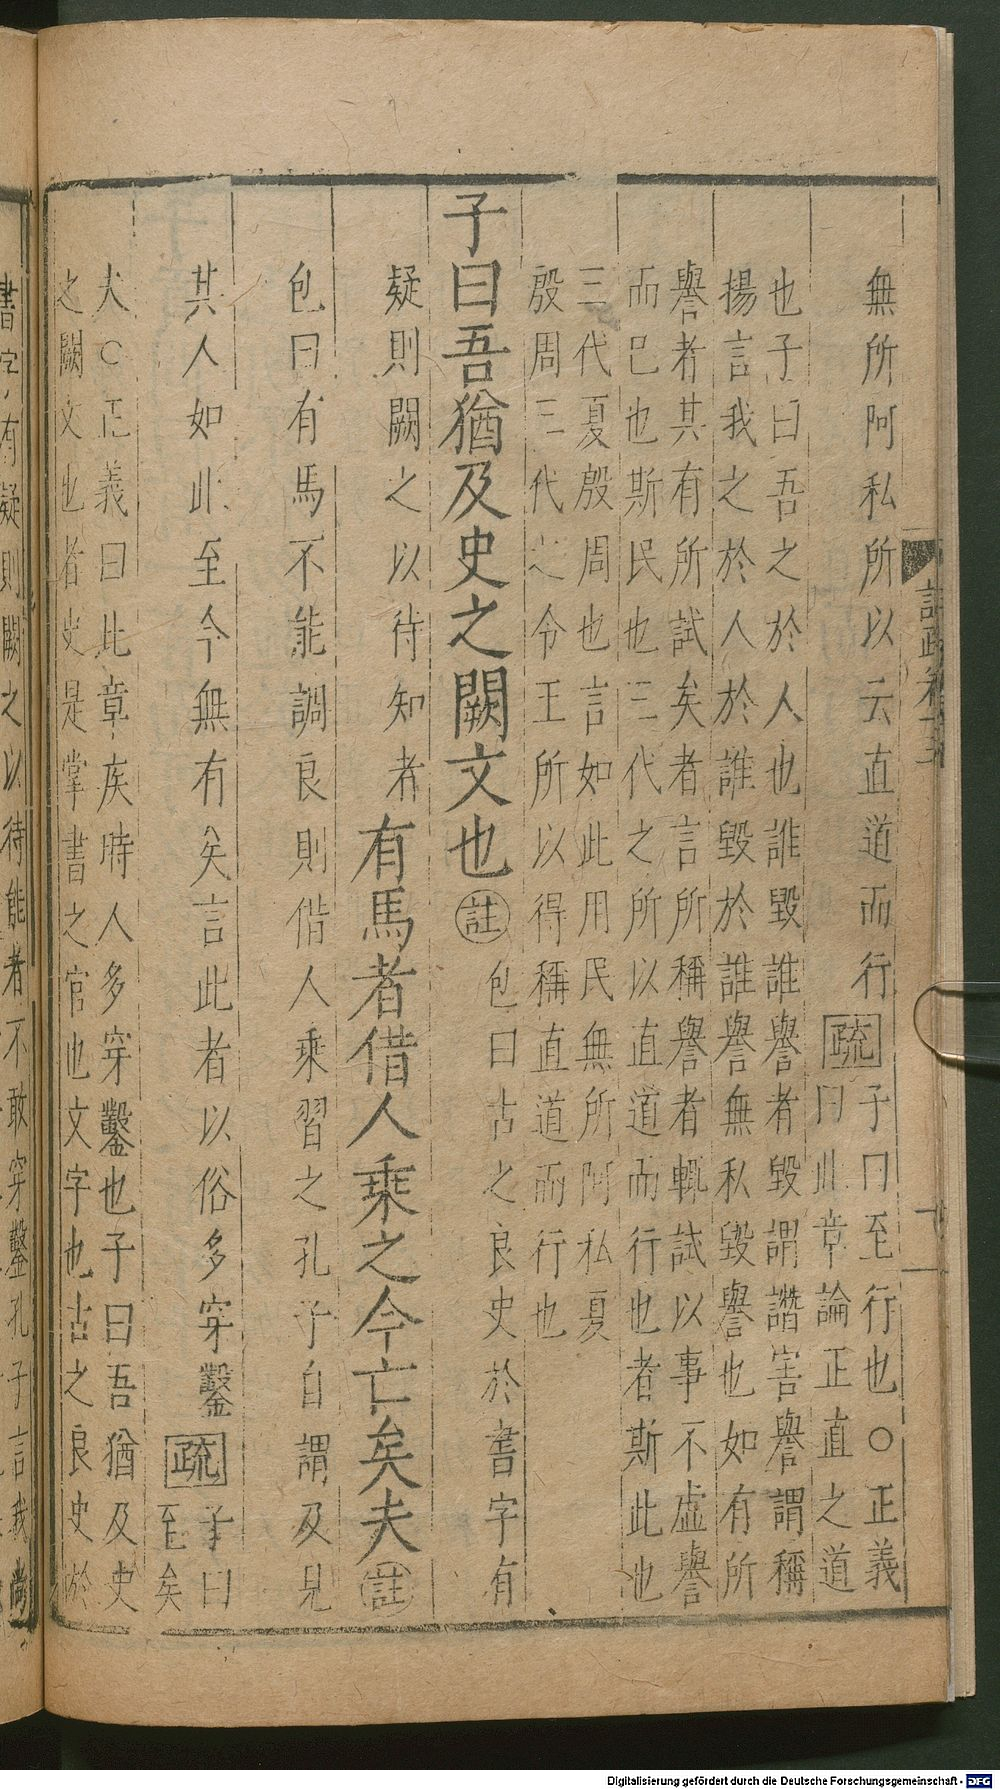 無所阿私所以云直道而行疏子曰至行也○正義
曰此章論正直之道
也子曰吾之於人也誰毀誰譽者毀謂譖害譽謂稱
揚言我之於人於誰毀於誰譽無私毀譽也如有所
譽者其有所試矣者言所稱譽者輒試以事不虛譽
而巳也斯民也三代之所以直道而行也者斯此也
三代夏殷周也言如此用民無所阿私夏
殷周三代之令王所以得稱直道而行也
子曰吾猶及史之闕文也註包曰古之良史於書字有
疑則闕之以待知者有馬者借人乘之今亡矣夫註
包曰有馬不能調良則借人乘習之孔子自謂及見
其人如此至今無有矣言此者以俗多穿鑿疏子曰
至矣
夫○正義曰此章疾時人多穿鑿也子曰吾猶及史
之闕文也者史是掌書之官也文字也古之良史於
書字有疑則闕之以待能者不敢穿鑿孔子言我尚
Digitalisierung gefördert durch die Deutsche Forschungsgemeinschaft - DFG